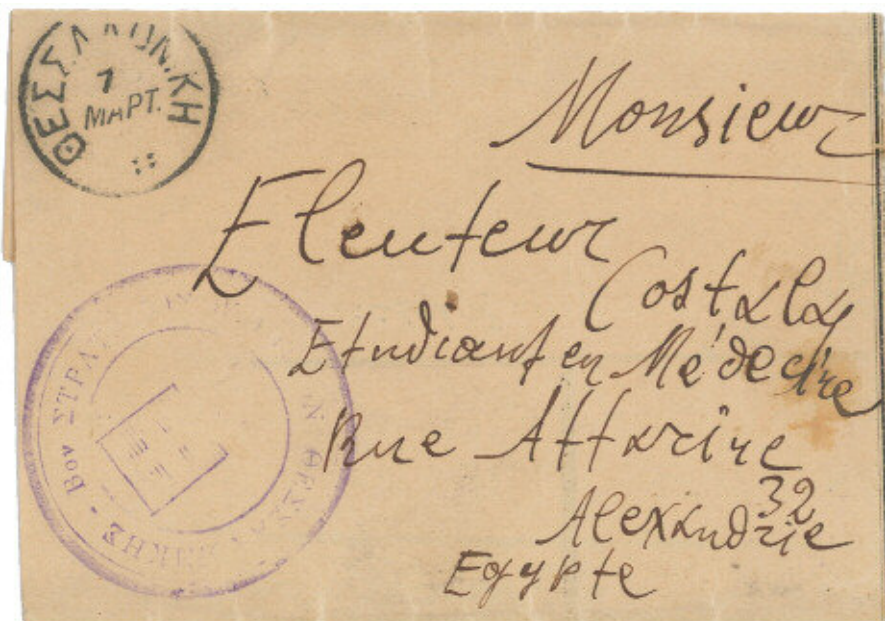 ΘΕΣΣΑΛΟΝΙΚΗ
7
ΜΑΡΤ.
Monsieur
Eleuteur
Costala
Etudiant en Médecine
Rue Attarine
32
Alexandrie
Egypte
Βον ΣΤΡΑΤ